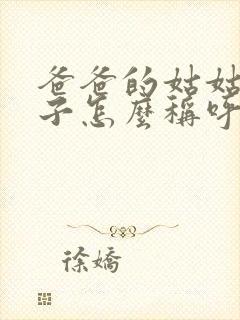 爸爸的姑姑
子怎麼稱呼
徐嬌